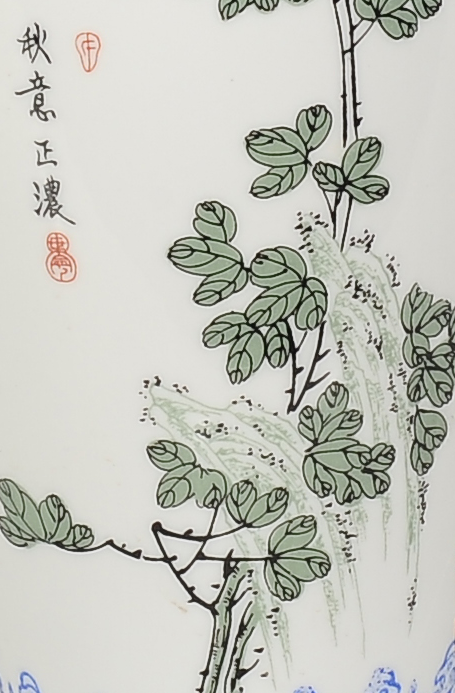 秋意正濃